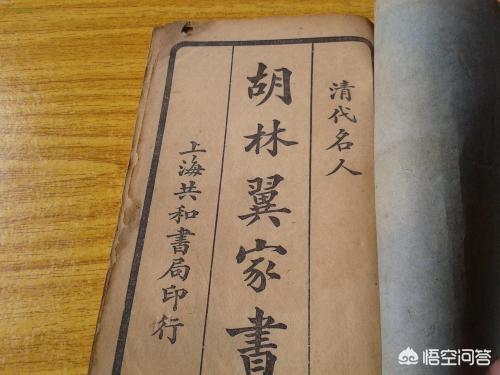 清代名人
胡林翼家書
上海共和書局印行
悟空问答